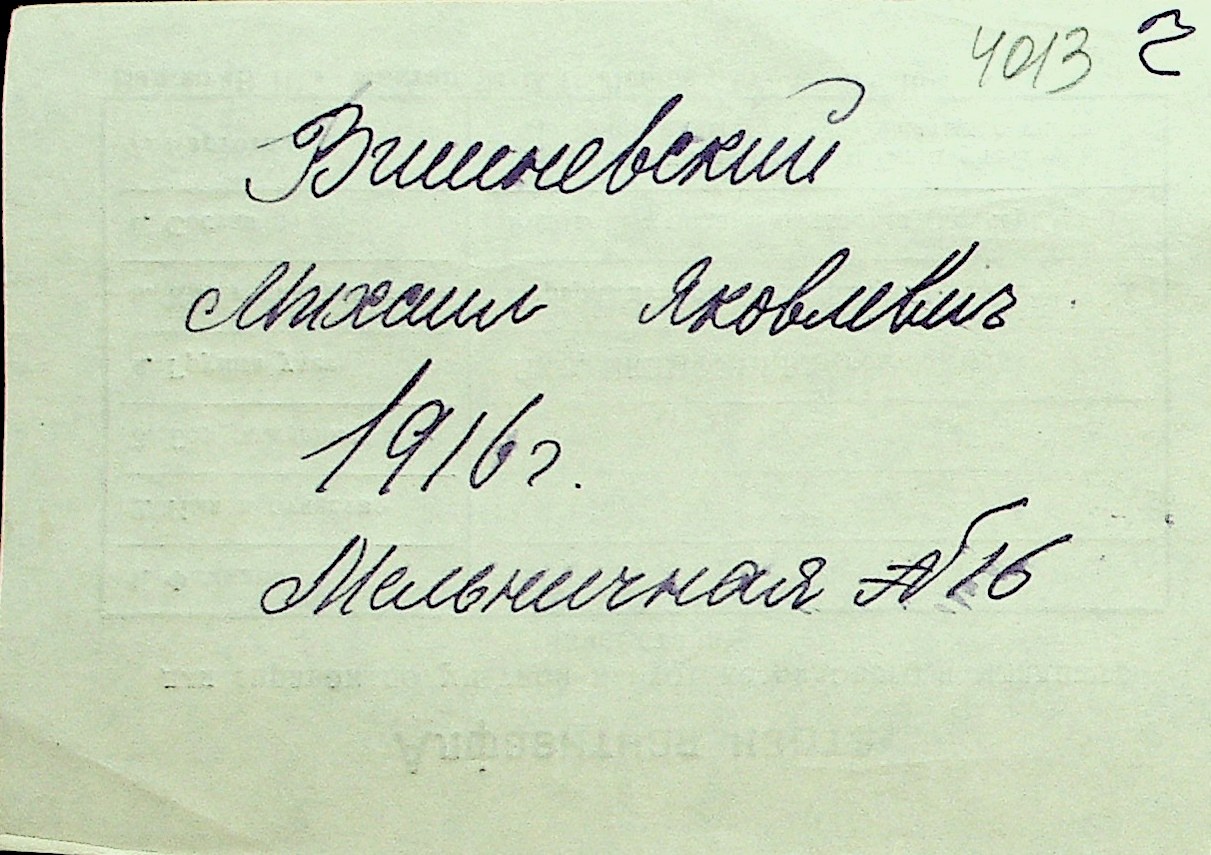 4013
Вишневский
Михаил Яковлевич
1916 г.
Мельничная №16